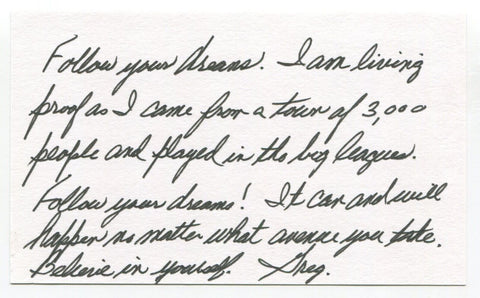 Follow your dreams. I am living
proof as I came from a town of 3,000
people and played in the big leagues.
Follow your dreams! It can and will
happen no matter what avenue you take.
Believe in yourself. Greg.